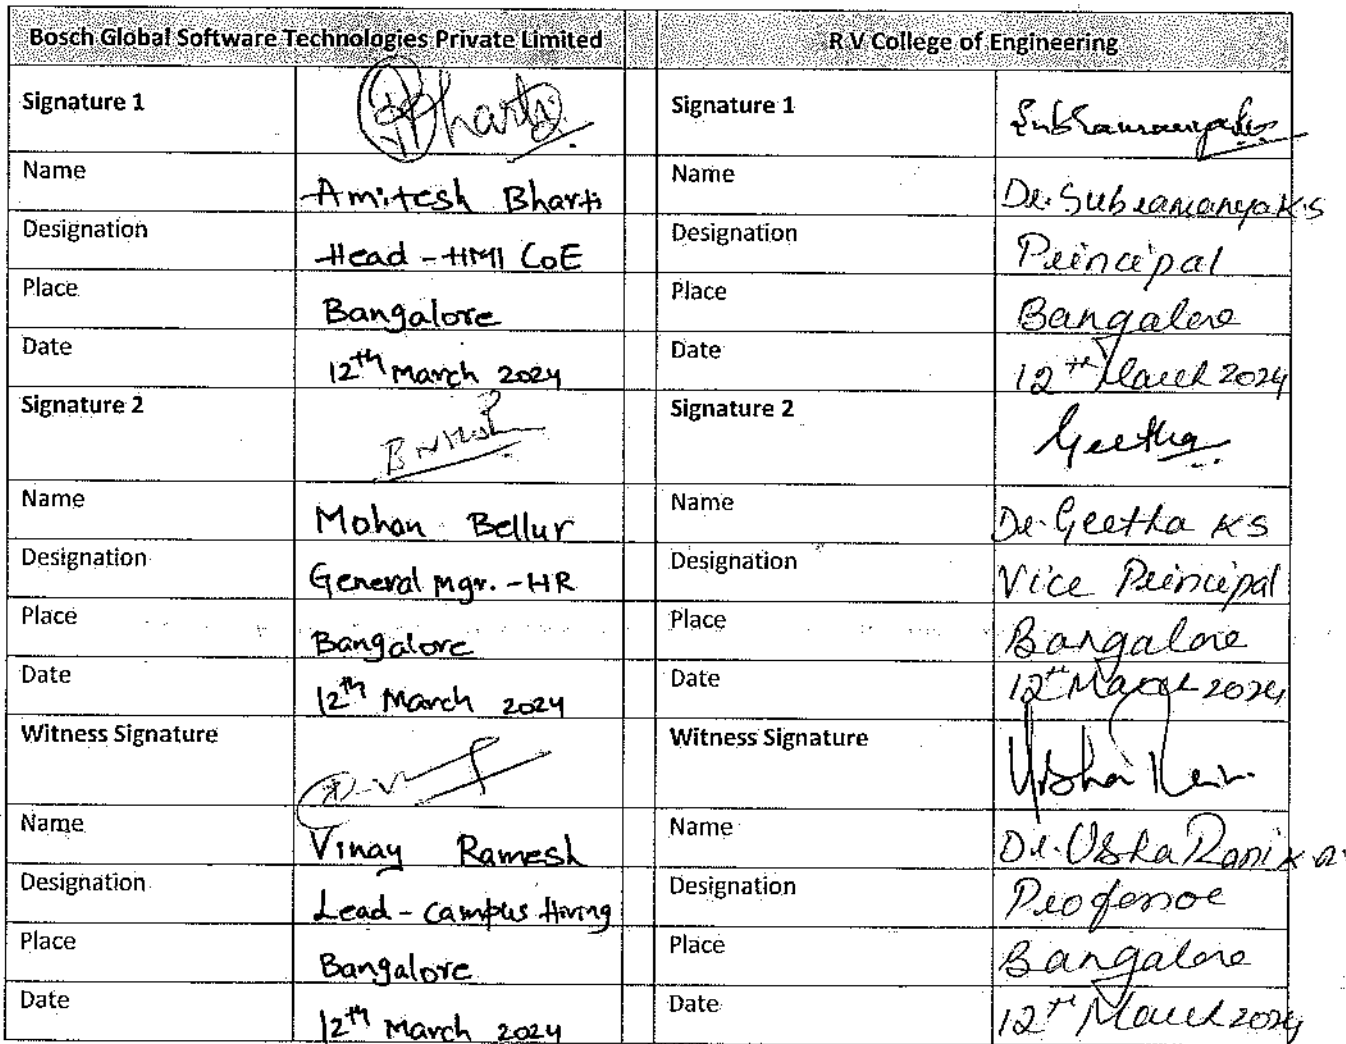 Bosch Global Software Technologies Private Limited R V College of Engineering
Signature 1 Bharti Signature 1 Subramanya
Name Amitesh Bharti Name Dr. Subramanya K S
Designation Head - HMI CoE Designation Principal
Place Bangalore Place Bangalore
Date 12th March 2024 Date 12th March 2024
Signature 2 Signature 2 Geetha
Name Mohan Bellur Name Dr. Geetha K S
Designation General Mgr. - HR Designation Vice Principal
Place Bangalore Place Bangalore
Date 12th March 2024 Date 12th March 2024
Witness Signature Witness Signature Usha Rani
Name Vinay Ramesh Name Dr. Usha Rani K R
Designation Lead - Campus Hiring Designation Professor
Place Bangalore Place Bangalore
Date 12th March 2024 Date 12th March 2024